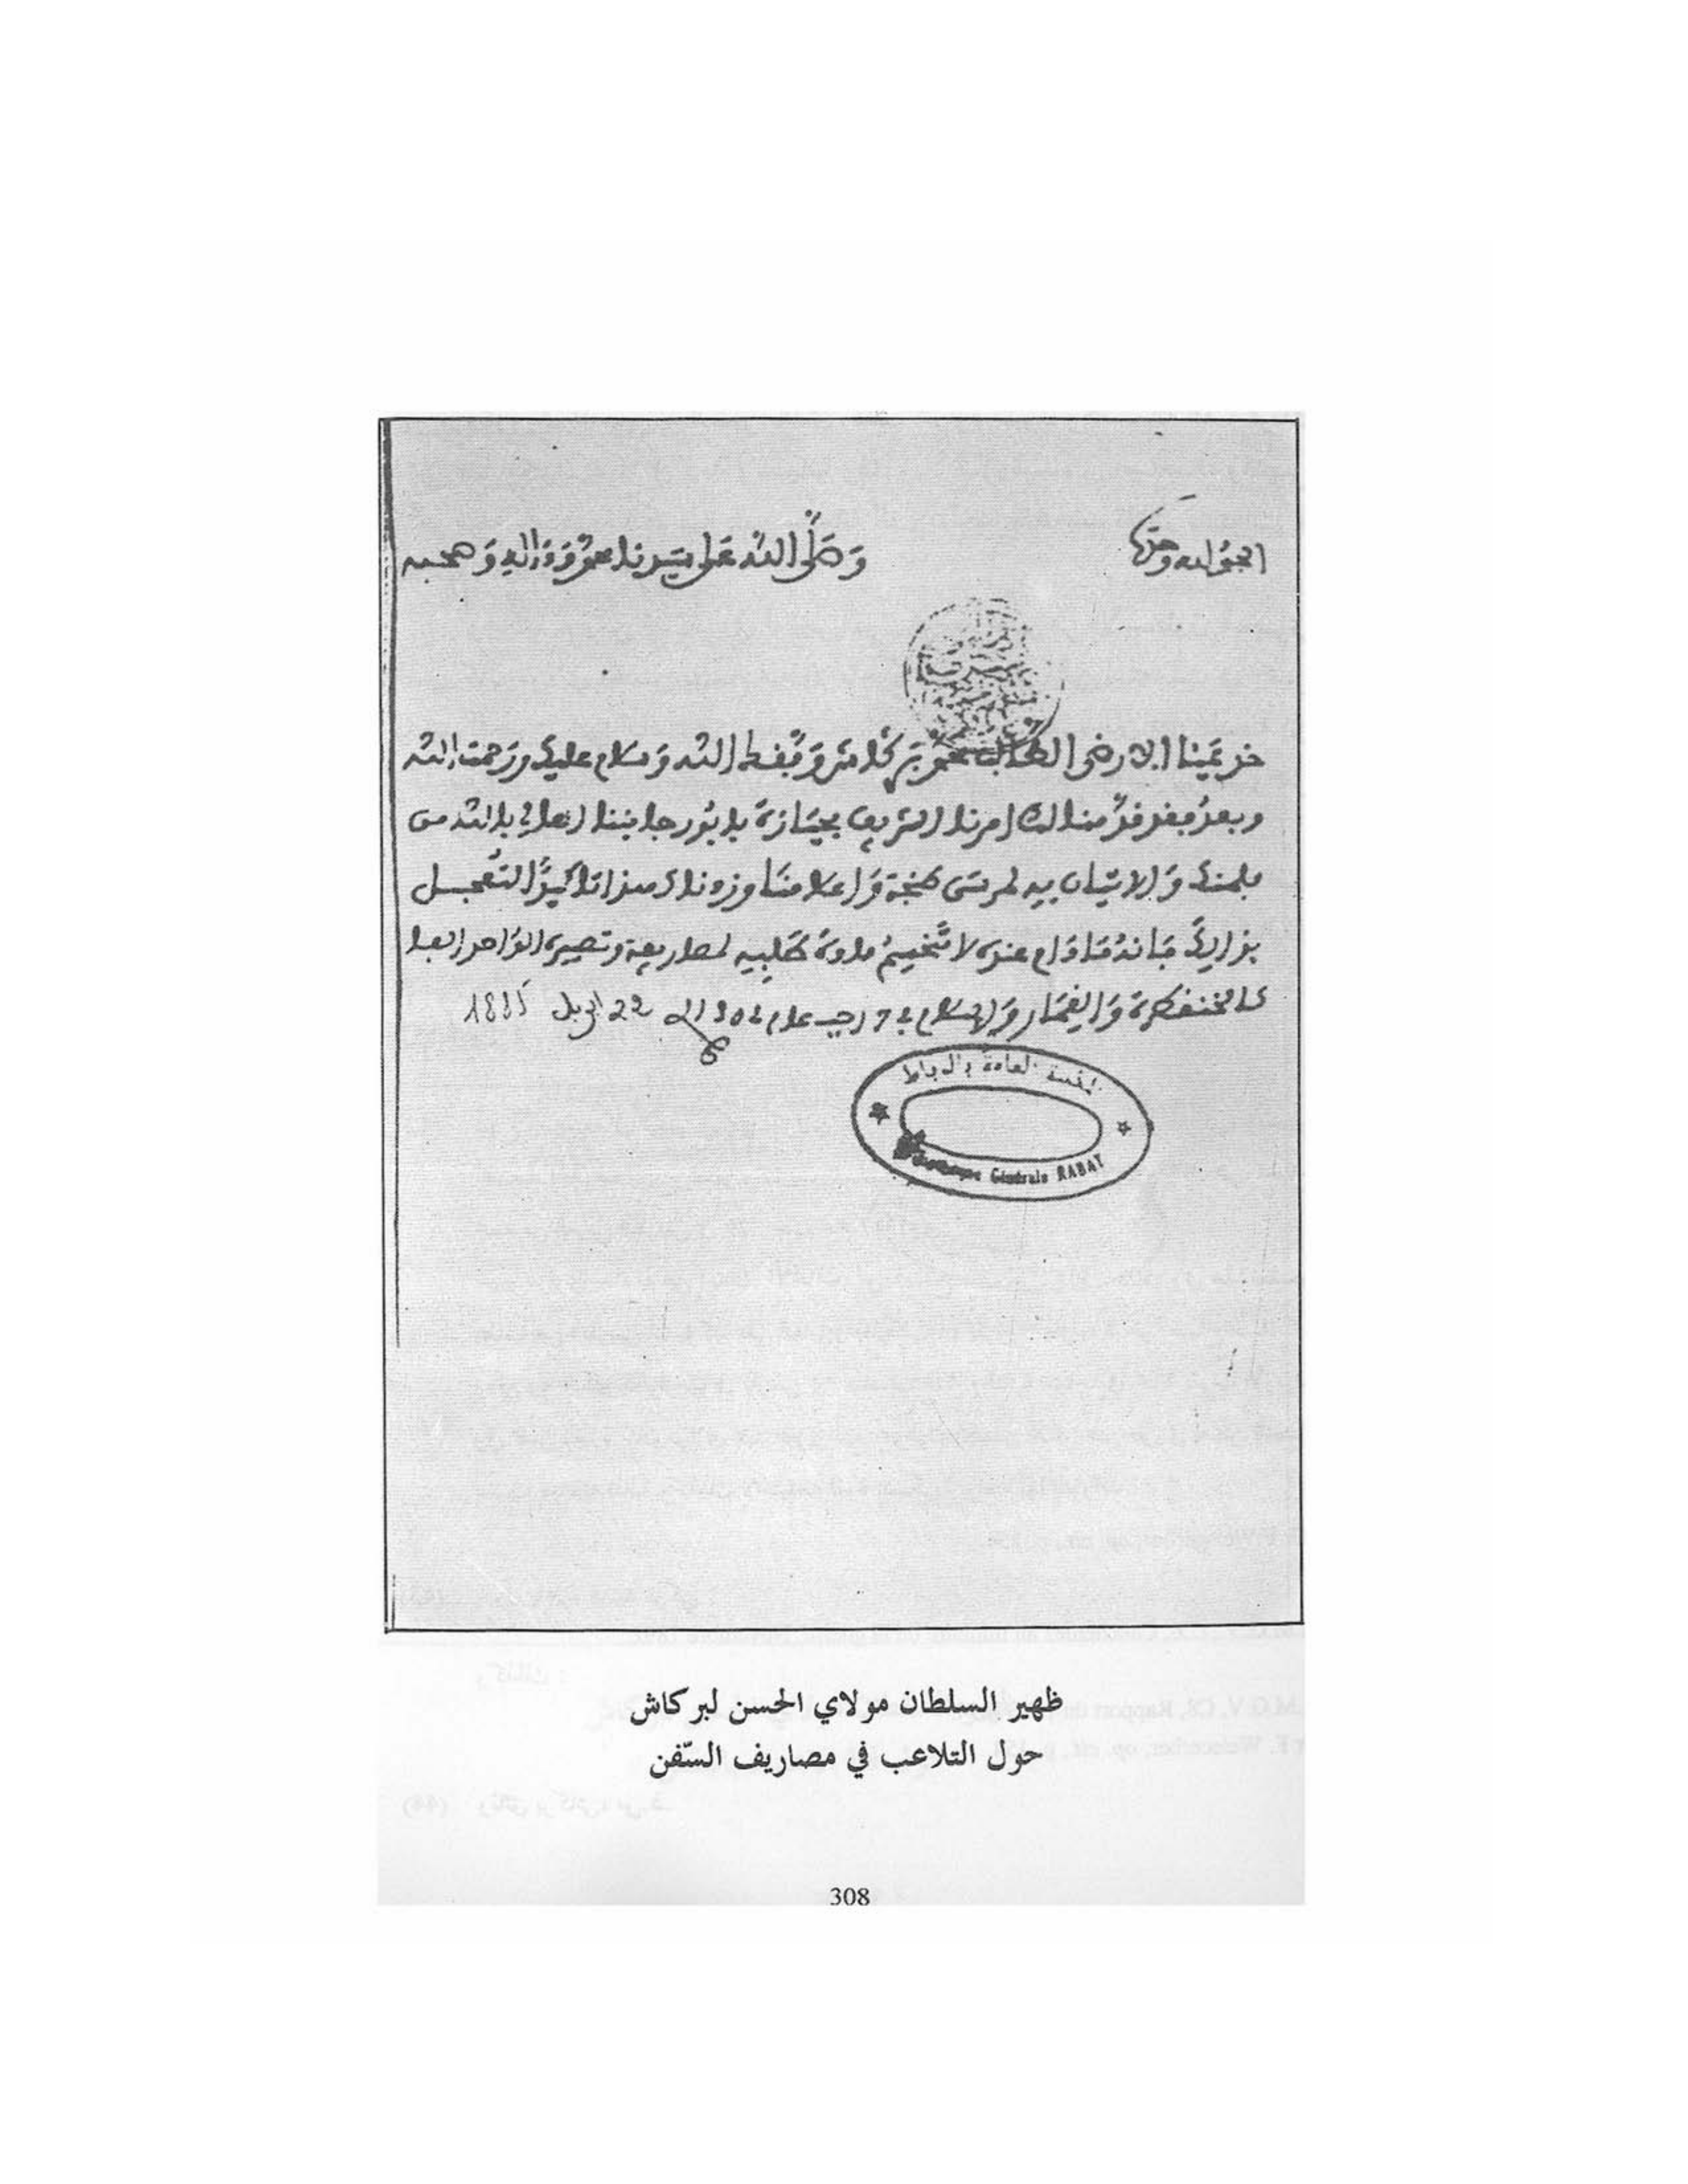 الحمد لله وحده
وصلى الله على سيدنا محمد وءاله وصحبه
خديمنا الارضى الطالب محمد بركاش وفقك الله وسلام عليك ورحمت الله
وبعد فقد قدمنا لك امرنا الشريف بحيازة بابور جانبنا العالي بالله من
والاتيان به لمرسى طنجة واعلامنا وزدناك هذا تاكيدا لتعجل
بذالك فانه ما دام عنده لا تنحسم مادة طلبه لمصاريفه وتصييره الواحد الفا
كالخنفكيرة والفمار والسلام في 7 رجب عام 1302
22 ابريل 1885
الخزانة العامة بالرباط
Bibliothèque Générale RABAT
ظهير السلطان مولاي الحسن لبركاش
حول التلاعب في مصاريف السّفن
308